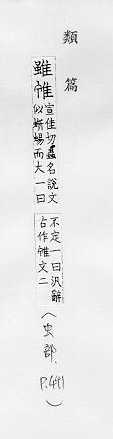 類篇
雖帷
宣佳切蟲名說文
似蜥蜴而大一曰
不定一曰況辭
占作帷文二
(虫部, P.491)